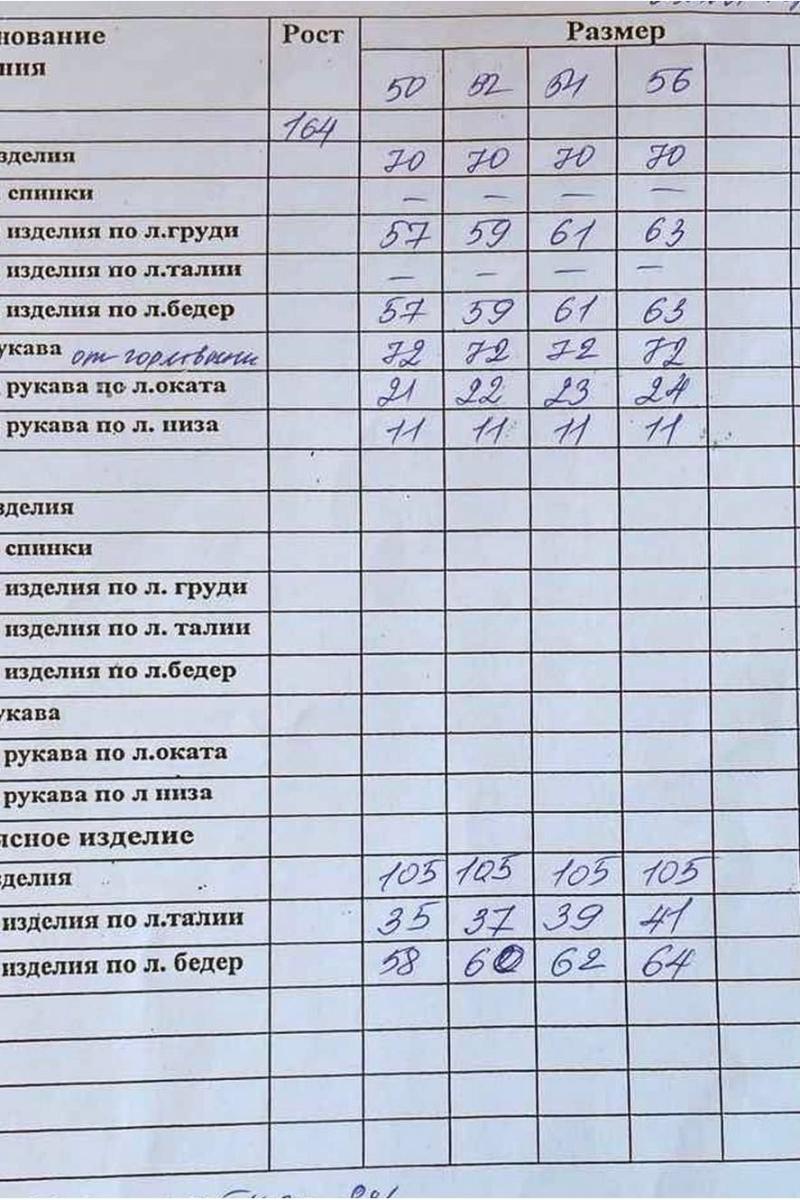 нование Рост Размер
ния 50 52 54 56
164
зделия 70 70 70 70
спинки — — — —
изделия по л.груди 57 59 61 63
изделия по л.талии — — — —
изделия по л.бедер 57 59 61 63
укава от горловины 72 72 72 72
рукава по л.оката 21 22 23 24
рукава по л. низа 11 11 11 11
зделия
спинки
изделия по л. груди
изделия по л. талии
изделия по л.бедер
укава
рукава по л.оката
рукава по л низа
ясное изделие
зделия 105 105 105 105
изделия по л.талии 35 37 39 41
изделия по л. бедер 58 60 62 64